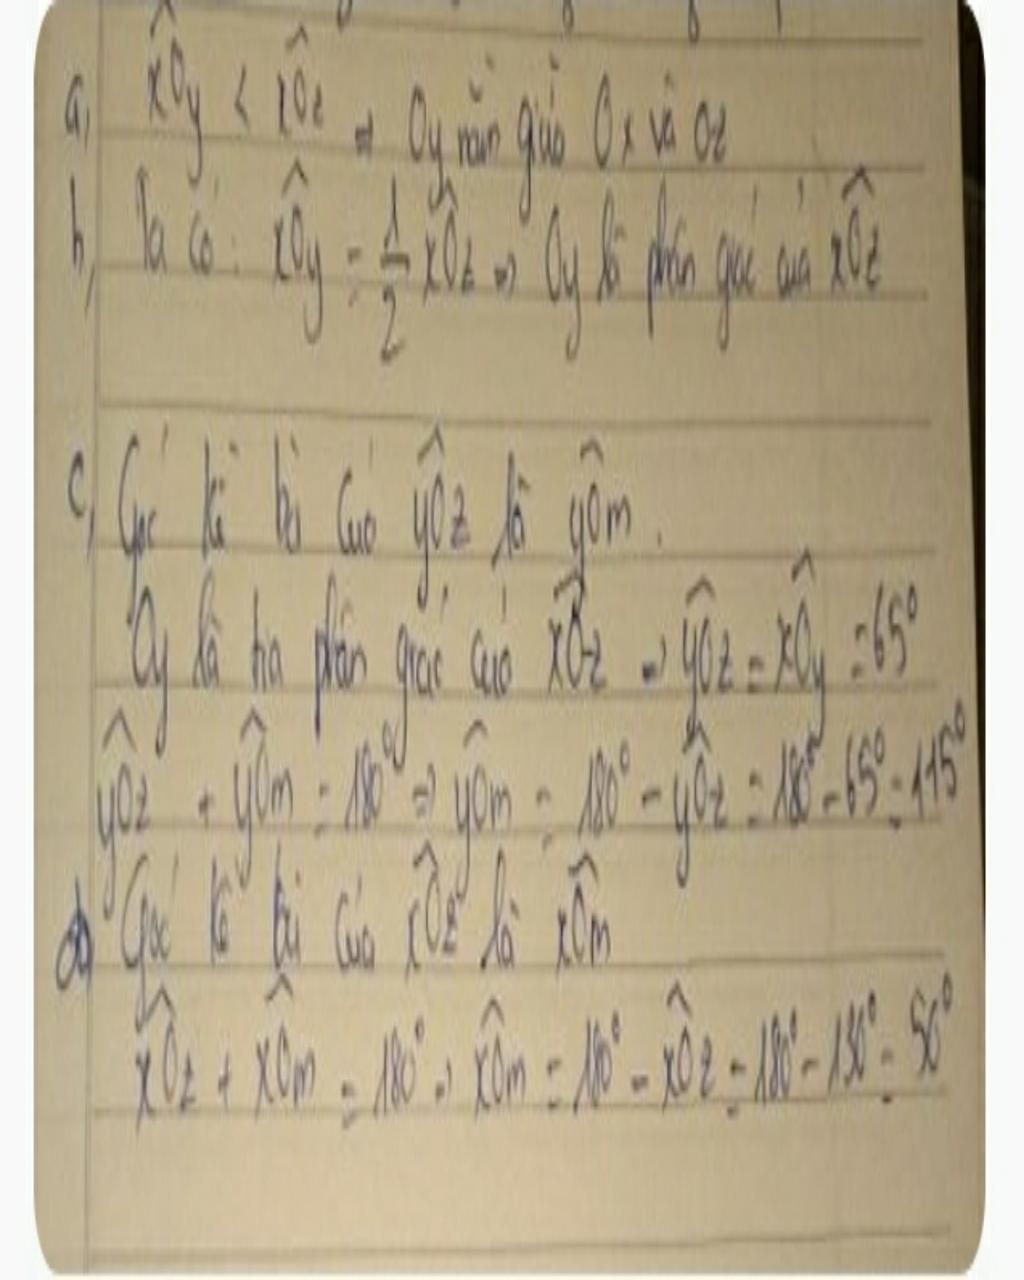 a, xÔy < xÔz ⇒ Oy nằm giữa Ox và Oz
b, Ta có : xÔy = 1/2 xÔz ⇒ Oy là phân giác của xÔz
c, Góc kề bù của yÔz là yÔm .
Oy là tia phân giác của xÔz ⇒ yÔz = xÔy = 65°
yÔz + yÔm = 180° ⇒ yÔm = 180° - yÔz = 180° - 65° = 115°
d, Góc kề bù của xÔz là xÔm
xÔz + xÔm = 180° ⇒ xÔm = 180° - xÔz = 180° - 130° = 50°